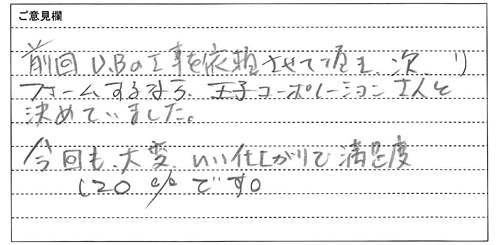 ご意見欄
前回U.Bの工事を依頼させて頂き、次リ
フォームするなら、王子コーポレーションさんと
決めていました。
今回も、大変、いい仕上がりで満足度
120%です。